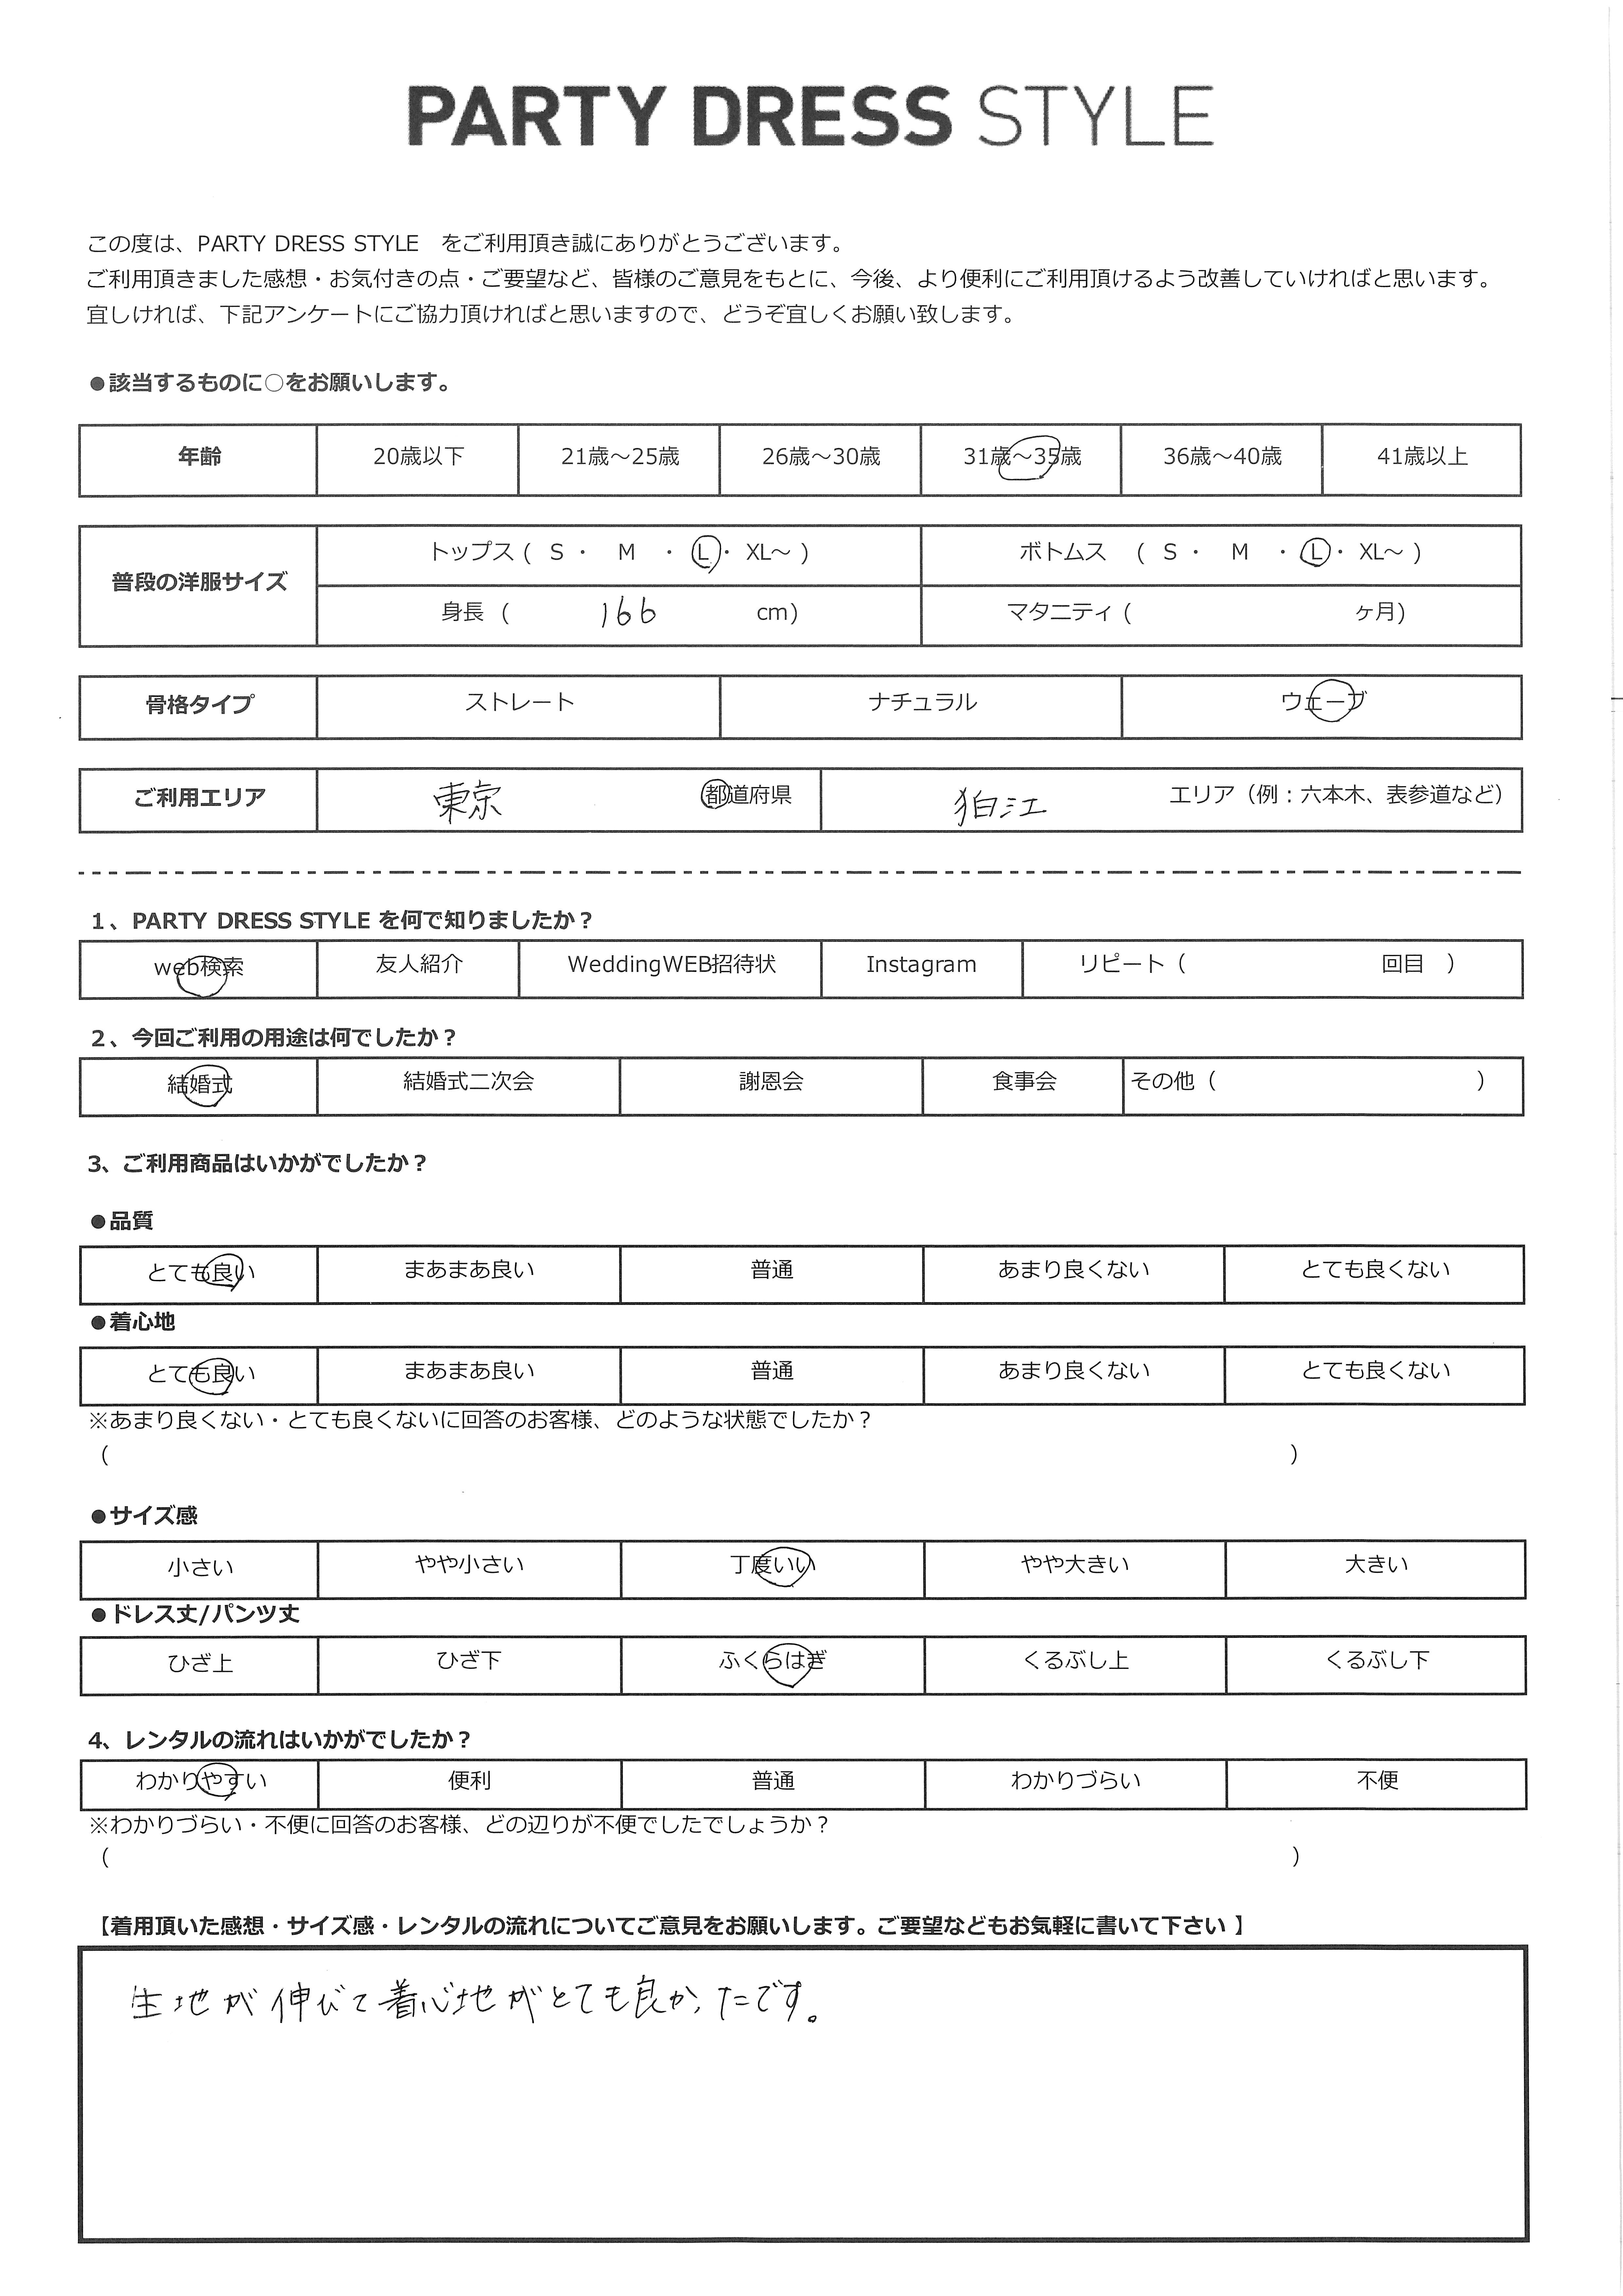 PARTY DRESS STYLE
この度は、PARTY DRESS STYLE　をご利用頂き誠にありがとうございます。
ご利用頂きました感想・お気付きの点・ご要望など、皆様のご意見をもとに、今後、より便利にご利用頂けるよう改善していければと思います。
宜しければ、下記アンケートにご協力頂ければと思いますので、どうぞ宜しくお願い致します。
●該当するものに○をお願いします。
年齢 20歳以下 21歳～25歳 26歳～30歳 31歳～35歳 36歳～40歳 41歳以上
普段の洋服サイズ
トップス ( S ・ M ・ L ・ XL～ ) ボトムス ( S ・ M ・ L ・ XL～ )
身長 ( 166 cm) マタニティ ( ヶ月)
骨格タイプ ストレート ナチュラル ウェーブ
ご利用エリア 東京 都道府県 狛江 エリア（例：六本木、表参道など）
1、PARTY DRESS STYLE を何で知りましたか？
web検索 友人紹介 WeddingWEB招待状 Instagram リピート（ 回目 ）
2、今回ご利用の用途は何でしたか？
結婚式 結婚式二次会 謝恩会 食事会 その他（ ）
3、ご利用商品はいかがでしたか？
●品質
とても良い まあまあ良い 普通 あまり良くない とても良くない
●着心地
とても良い まあまあ良い 普通 あまり良くない とても良くない
※あまり良くない・とても良くないに回答のお客様、どのような状態でしたか？
（ ）
●サイズ感
小さい やや小さい 丁度いい やや大きい 大きい
●ドレス丈/パンツ丈
ひざ上 ひざ下 ふくらはぎ くるぶし上 くるぶし下
4、レンタルの流れはいかがでしたか？
わかりやすい 便利 普通 わかりづらい 不便
※わかりづらい・不便に回答のお客様、どの辺りが不便でしたでしょうか？
（ ）
【着用頂いた感想・サイズ感・レンタルの流れについてご意見をお願いします。ご要望などもお気軽に書いて下さい 】
生地が伸びて着心地がとても良かったです。